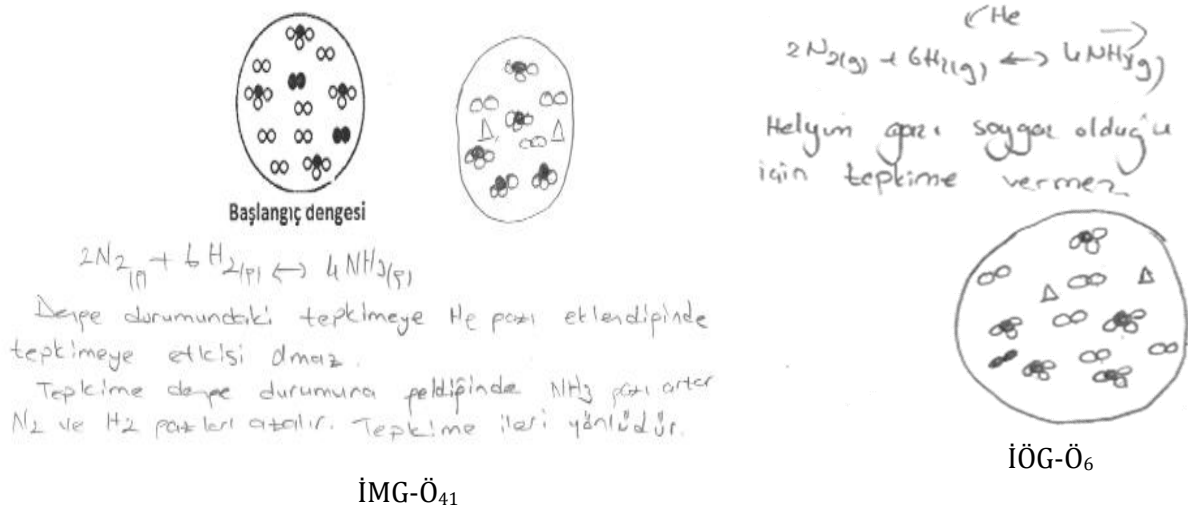 Başlangıç dengesi
2N₂(g) + 6H₂(g) ↔ 4NH₃(g)
Denge durumundaki tepkimeye He gazı eklendiğinde
tepkimeye etkisi olmaz.
Tepkime denge durumuna geldiğinde NH₃ gazı artar
N₂ ve H₂ gazları azalır. Tepkime ileri yönlüdür.
İMG-Ö₄₁
He
2N₂(g) + 6H₂(g) ↔ 4NH₃(g)
Helyum gazı soygaz olduğu
için tepkime vermez
İÖG-Ö₆